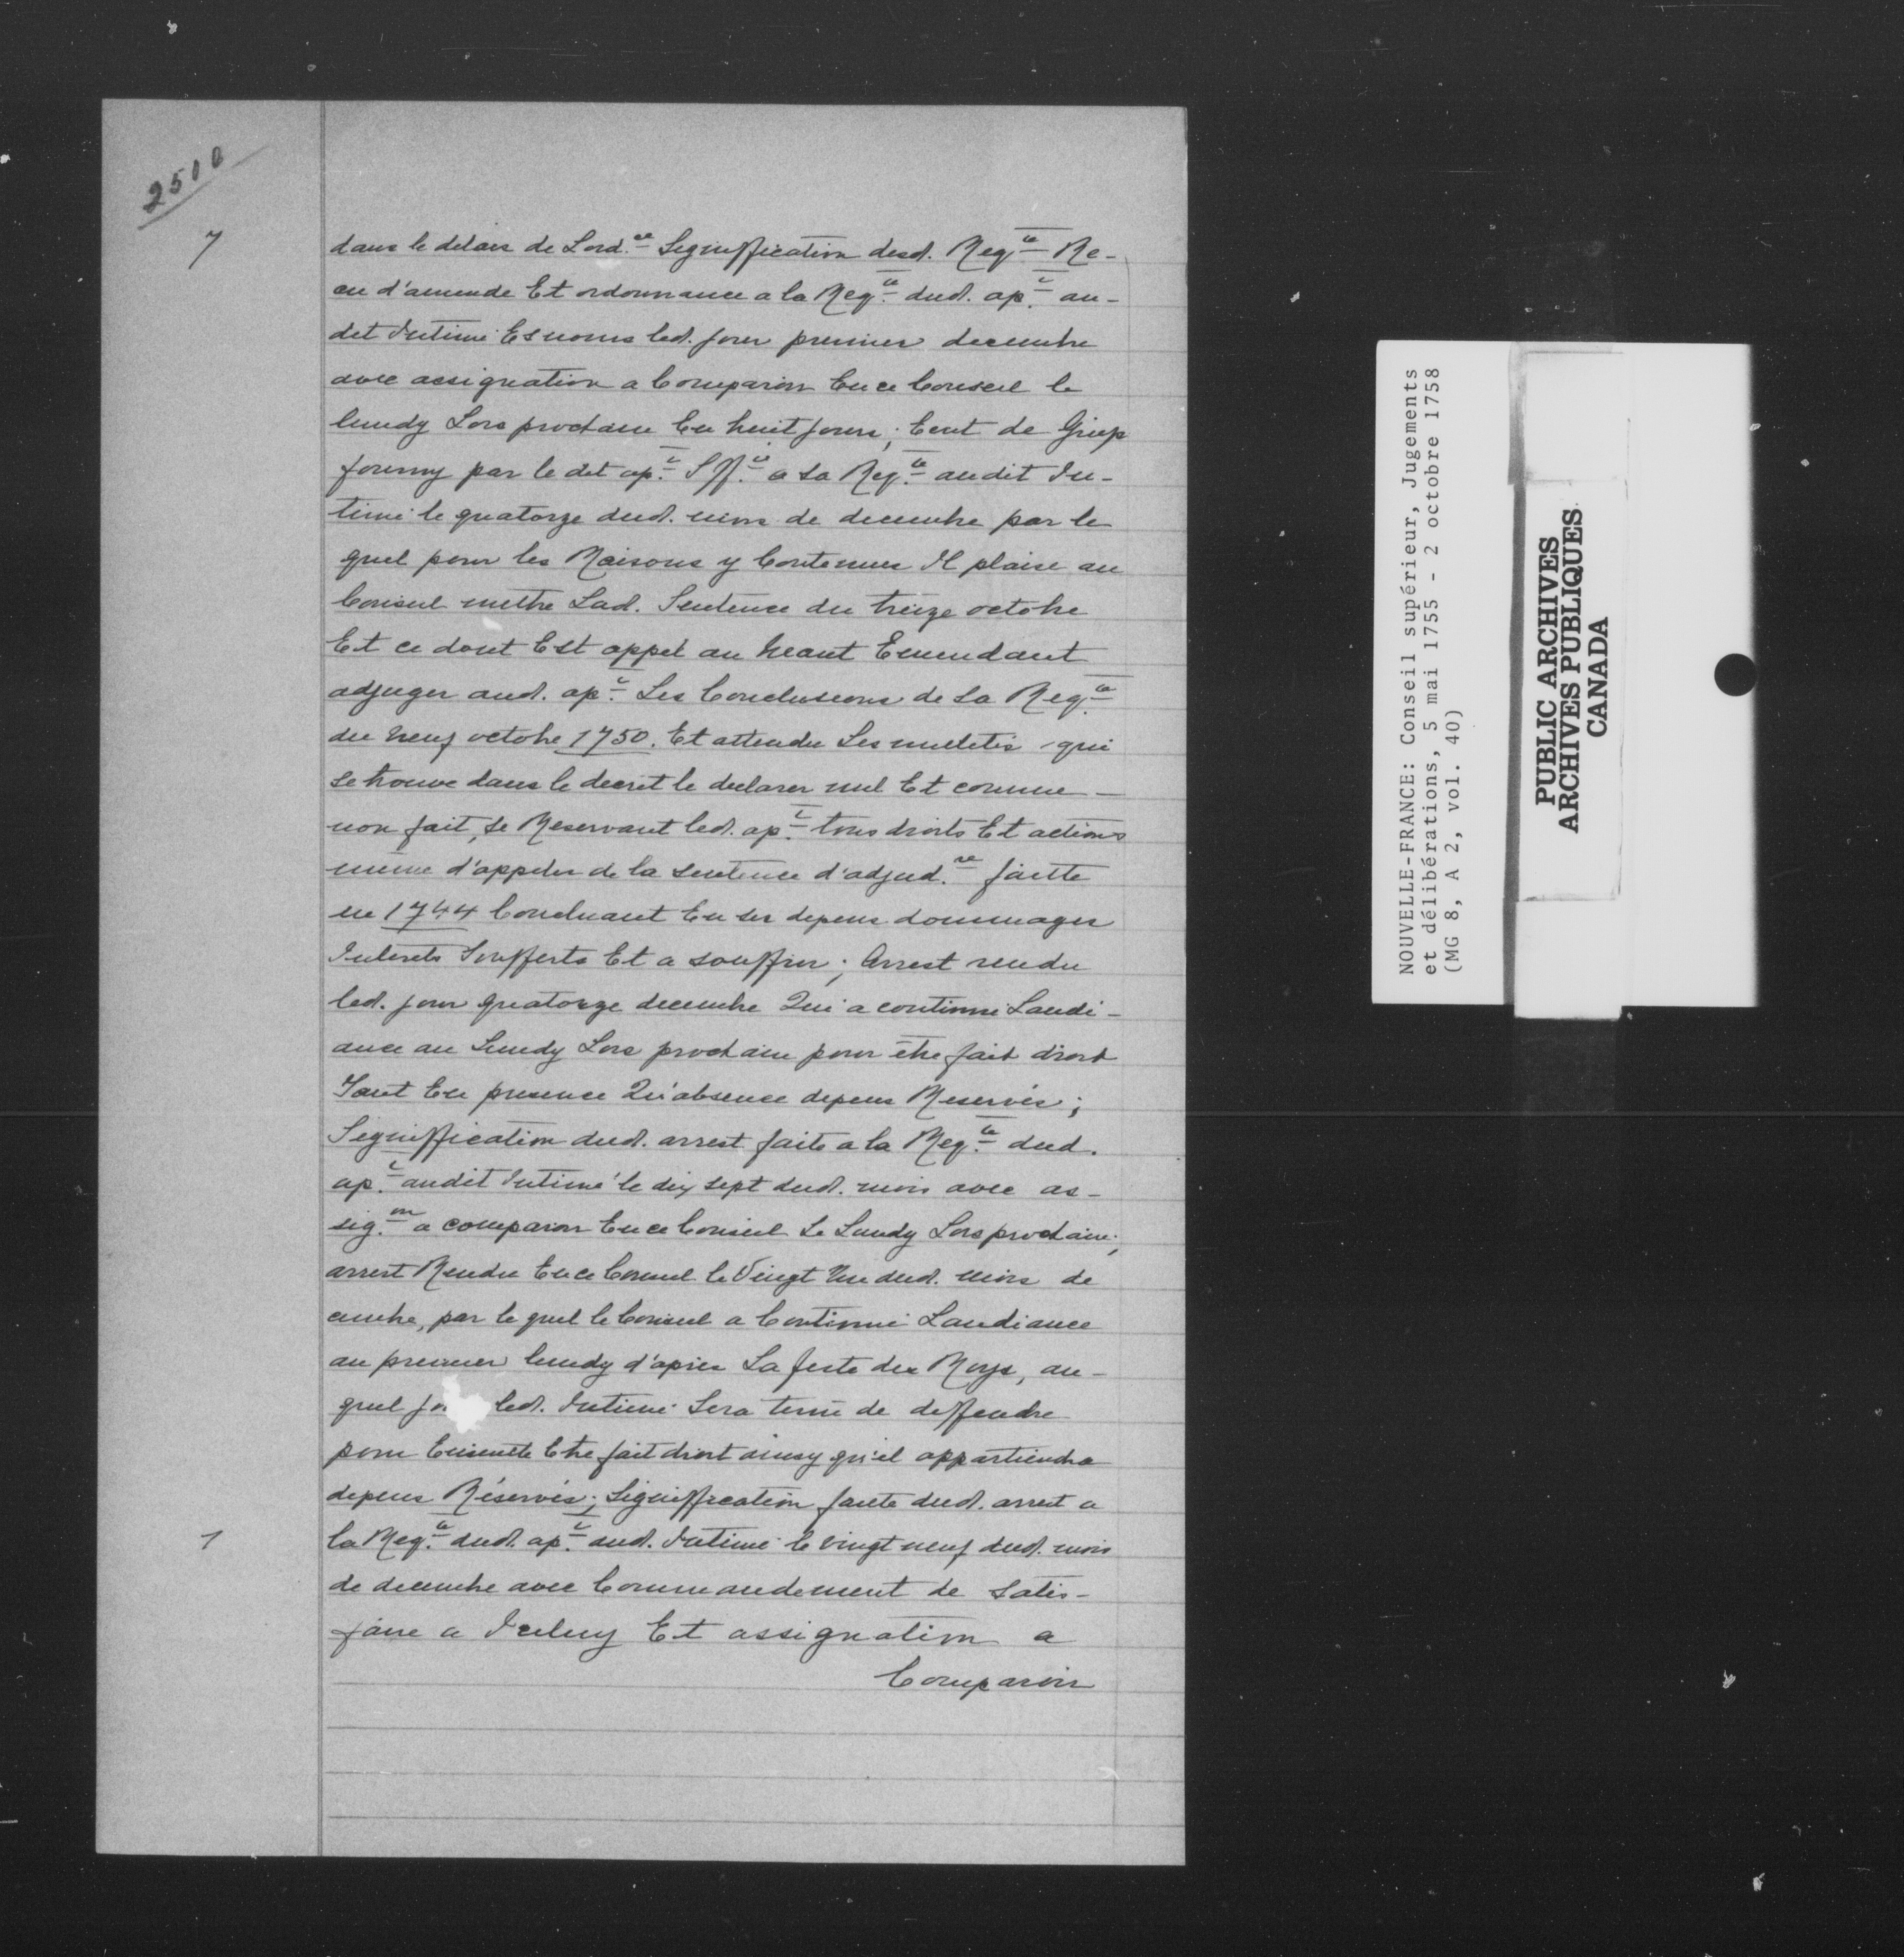 2510
7
dans le delais de Lord.ce Signiffication desd. Reqte Re-
cu d'amende Et ordonnance a la Reqte dud. apt au-
dit Intimé Esnoms led. jour premier decembre
avec assignation a Comparoir En ce Conseil le
lundy Lors prochain En huit jours; Ecrit de Griefs
fourny par le dit apt Sffié a sa Reqte audit In-
timé le quatorze dud. mois de decembre par le
quel pour les Raisons y Contenues Il plaise au
Conseil mettre Lad. Sentence du treize octobre
Et ce dont Est appel au Neant Emendant
adjuger aud. apt Les Conclusions de sa Reqte
du Neuf octobre 1750. Et attendu Les nulletés qui
se trouve dans le decret le declarer nul Et comme
non fait, se Reservant led. apt tous droits Et actions
même d'appeler de la sentence d'adjud.re faitte
en 1744 Concluant En ses depens dommages
Interets Soufferts Et a souffrir; Arrest rendu
led. jour quatorze decembre Qui a continué Laudi-
ance au Lundy Lors prochain pour être fait droit
Tant En presence Qu'absence depens Reservés;
Signiffication dud. arrest faite a la Reqte dud.
apt audit Intimé le dix sept dud. mois avec as-
sig.on a comparoir En ce Conseil Le Lundy Lors prochain;
arrest Rendu En ce Conseil le Vingt Un dud. mois de
cembre, par le quel le Conseil a Continué Laudiance
au premier lundy d'après La feste des Roys, au-
quel jo led. Intimé Sera tenu de deffendre
pour Ensuitte Etre fait droit ainsy qu'il appartiendra
depens Réservés; Signiffication faite dud. arrest a
1
la Reqte dud. apt aud. Intimé le vingt neuf dud. mois
de decembre avec Commandement de satis-
faire a Iceluy Et assignation a
Comparoir
NOUVELLE-FRANCE: Conseil supérieur, Jugements
et délibérations, 5 mai 1755 - 2 octobre 1758
(MG 8, A 2, vol. 40)
PUBLIC ARCHIVES
ARCHIVES PUBLIQUES
CANADA